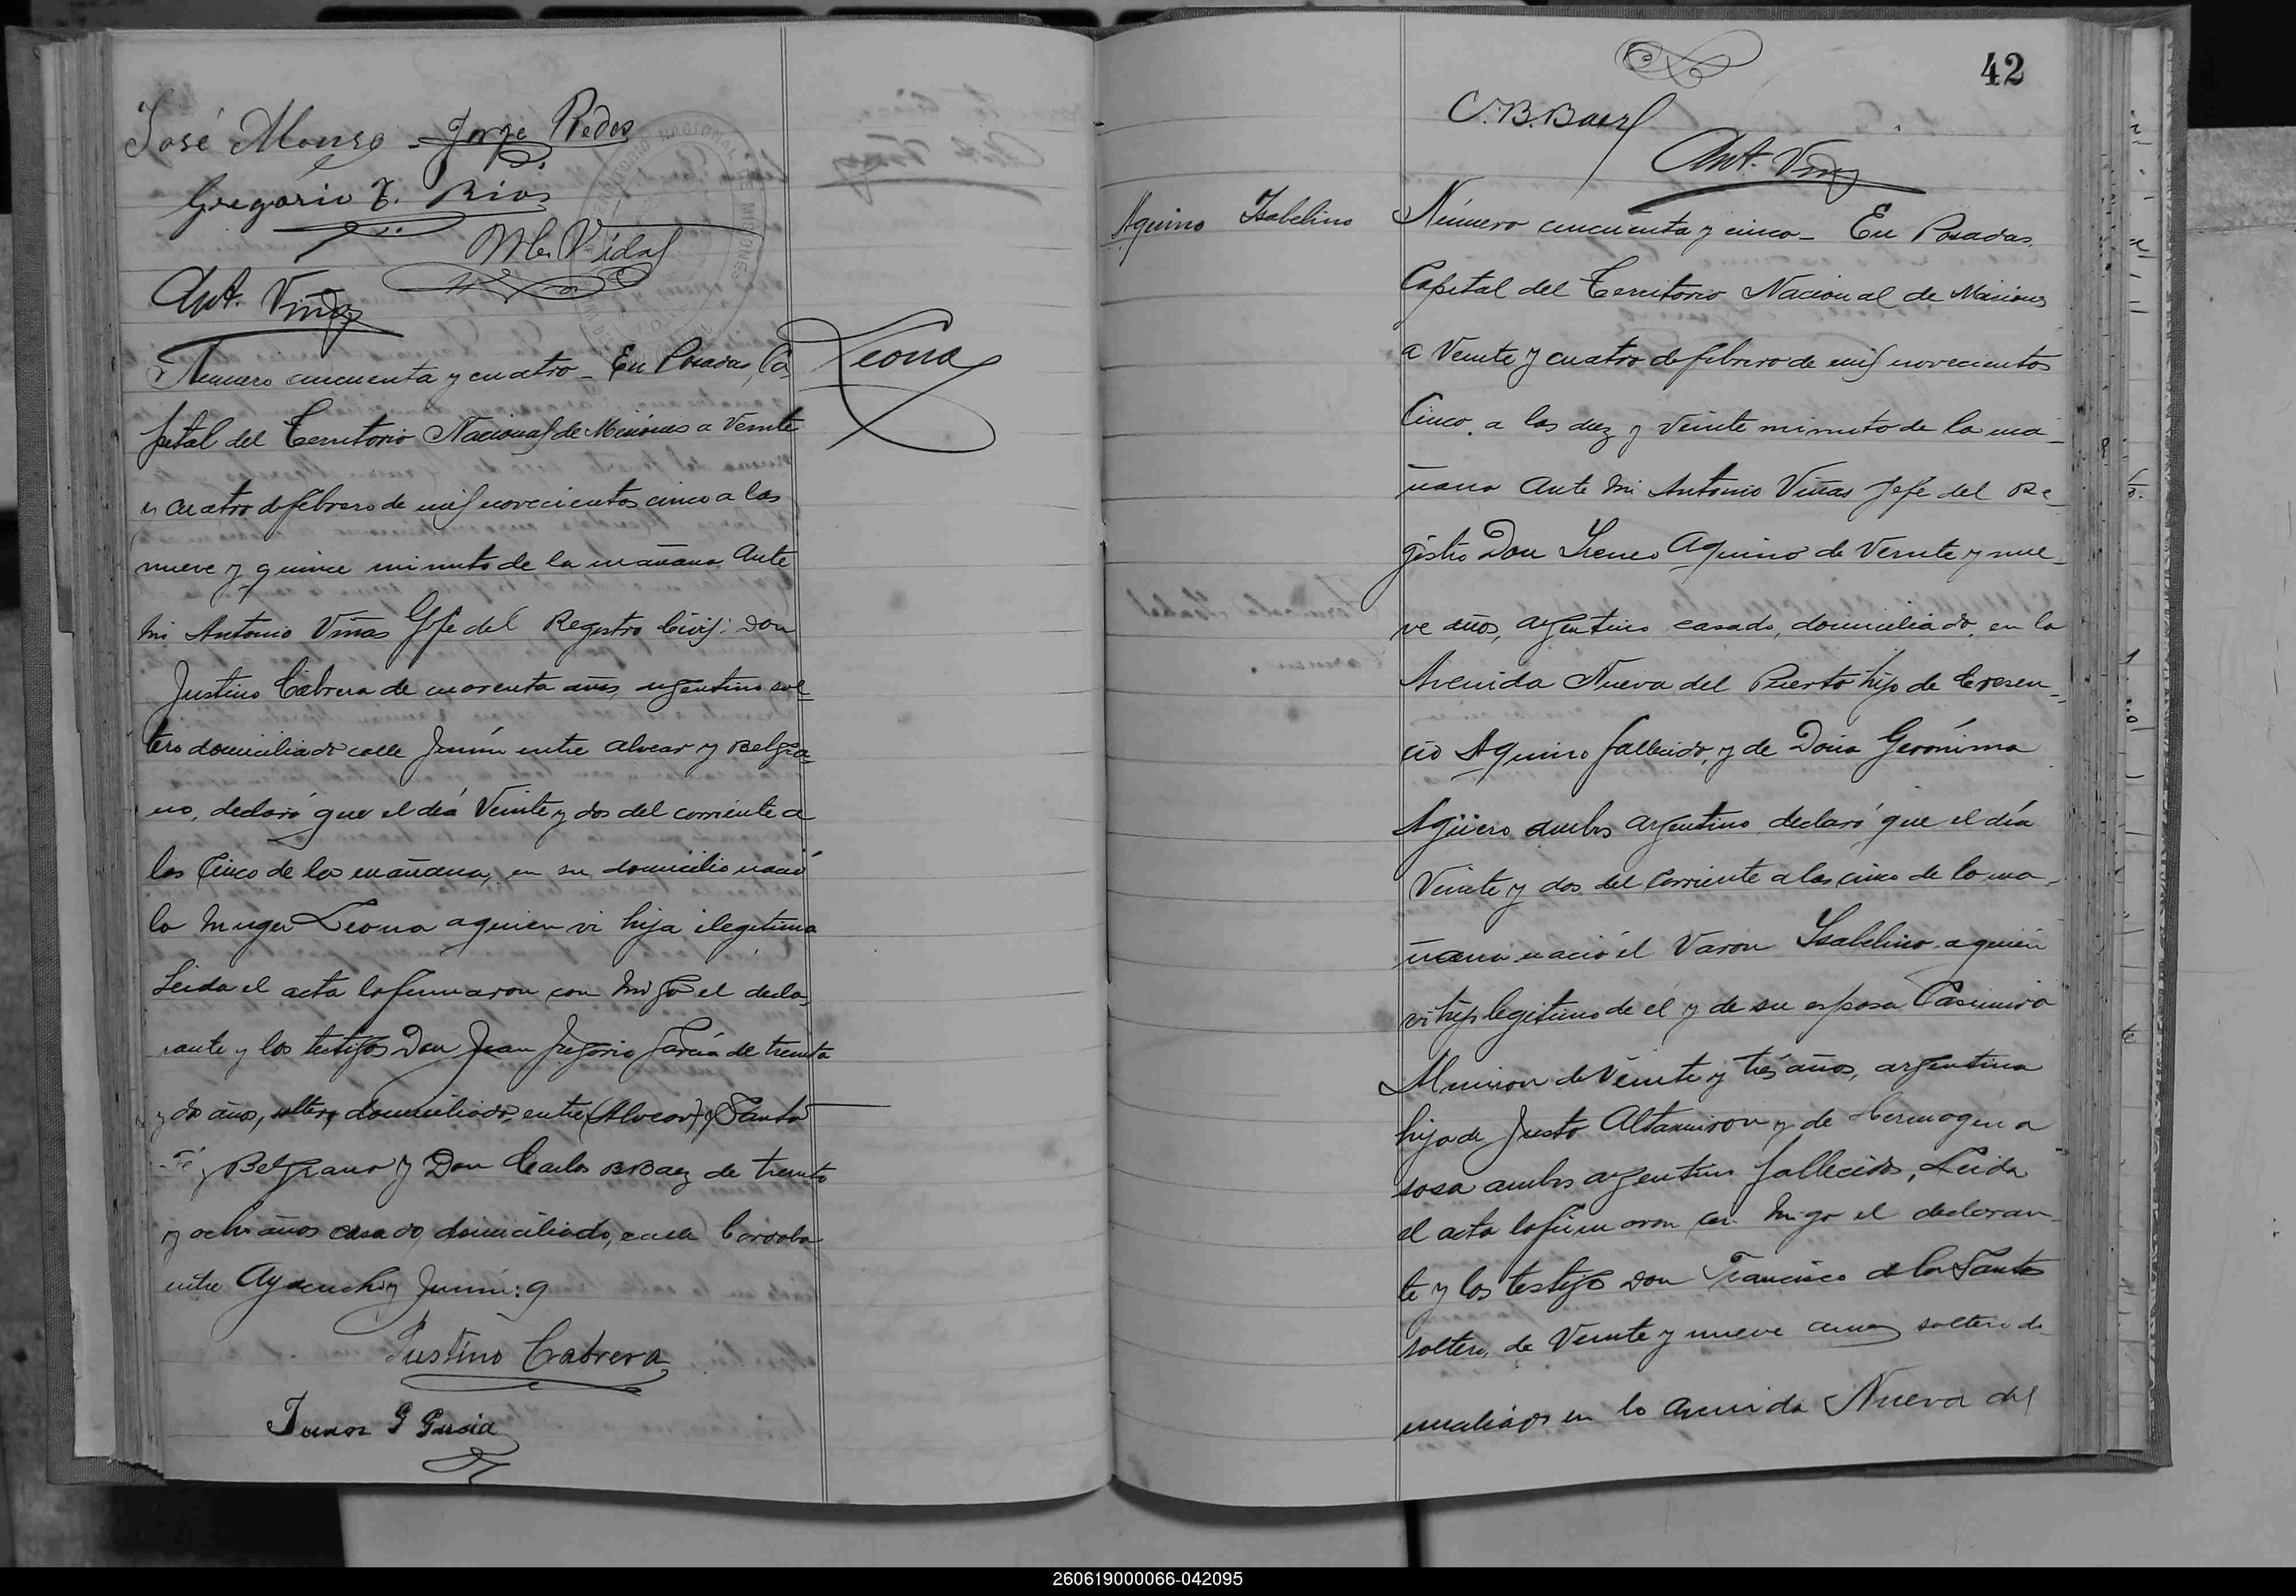 José Alonso - Jorge Redes
Gregório F. Rios
Ml. Vidal
Ant. Viñas
Leona
Número cincuenta y cuatro - En Posadas, Ca-
pital del Territorio Nacional de Misiones a Veinte
y cuatro de febrero de mil novecientos cinco a las
nueve y quince minuto de la mañana Ante
mi Antonio Viñas Gefe del Registro Civil: Don
Justino Cabrera de cuarenta años, argentino sol-
tero domiciliado calle Junín entre alvear y Belgra-
no, declaró que el día Veinte y dos del corriente a
las Cinco de la mañana, en su domicilio nació
la muger Leona aquien vi hija ilegitima
Leida el acta la firmaron con migo el decla-
rante y los testigos Don Juan Gregorio García de treinta
y dos años, soltero, domiciliado, entre (Alvear) y Santa
Fé y Belgrano y Don Carlos B Baez de treinta
y ocho años casado, domiciliado, calle Cordoba
entre Ayacucho y Junin:
Justino Cabrera
G Garcia
42
C. B. Baez
Ant. Viñas
Aquino Isabelino
Número cincuenta y cinco - En Posadas
Capital del Territorio Nacional de Misiones
a Veinte y cuatro de febrero de mil novecientos
Cinco, a las diez y veinte minuto de la ma-
ñana Ante mi Antonio Viñas Jefe del Re-
gistro Don Ireneo Aquino de Veinte y nue-
ve años, argentino casado, domiciliado, en la
Avenida Nueva del Puerto hijo de Cresen-
cio Aquino fallecido, y de Doña Gerónima
Agüero ambos argentino declaró que el día
Veinte y dos del corriente a las cinco de la ma-
ñana nació el Varon Ysabelino aquien
vi hijo legitimo de él y de su esposa Casimira
de Veinte y tres años, argentina
hija de Justo Altamiron y de Hermogena
sosa ambos argentino fallecidos, Leida
el acta la firmaron con migo el declaran-
te y los testigo Don Francisco de los Santos
soltero, de Veinte y nueve años soltero do-
miciliado en la avenida Nueva del
260619000066-042095